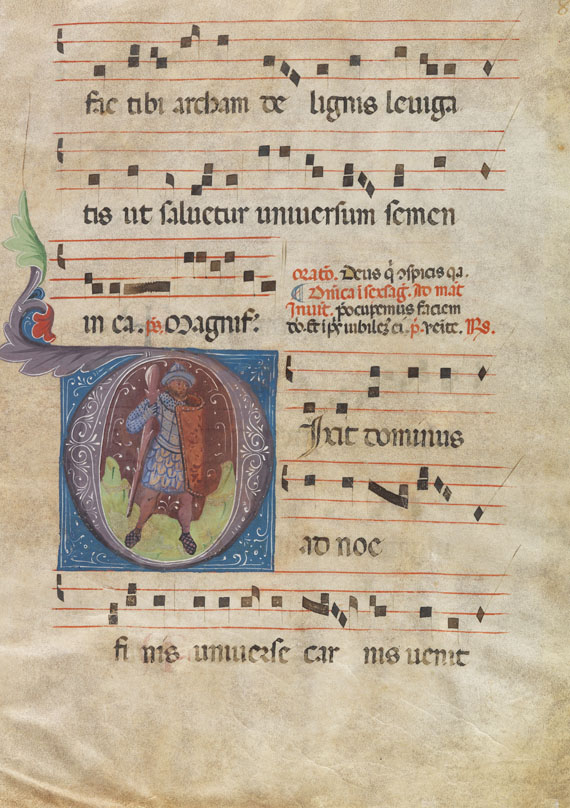 fac tibi archam de lignis leviga
tis ut salvetur universum semen
in ea. ps. Magnif.
orato. Deus q̇ ↄspicis qa.
Dnica i sexag. Ad mat
Invit. pocupemus faciem
do. ⁊ i ps iubilem ei. p. Venite. Rs.
Ixit dominus
ad noe
fi nis universe car nis venit